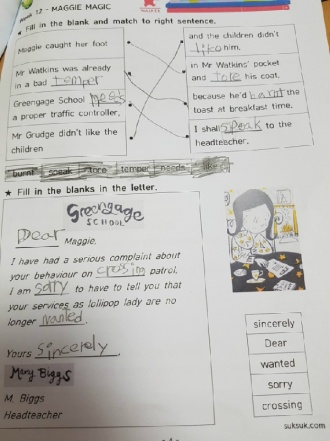 Week 12 - MAGGIE MAGIC
★ Fill in the blank and match to right sentence.
Maggie caught her foot
and the children didn't
like him.
Mr Watkins was already
in a bad temper
in Mr Watkins' pocket
and tore his coat.
Greengage School needs
a proper traffic controller.
because he'd burnt the
toast at breakfast time.
Mr Grudge didn't like the
children
I shall speak to the
headteacher.
burnt speak tore temper needs like
★ Fill in the blanks in the letter.
Greengage
SCHOOL
Dear Maggie,
I have had a serious complaint about
your behaviour on crossing patrol.
I am sorry to have to tell you that
your services as lollipop lady are no
longer wanted.
Yours sincerely
Mary Biggs
M. Biggs
Headteacher
sincerely
Dear
wanted
sorry
crossing
suksuk.com